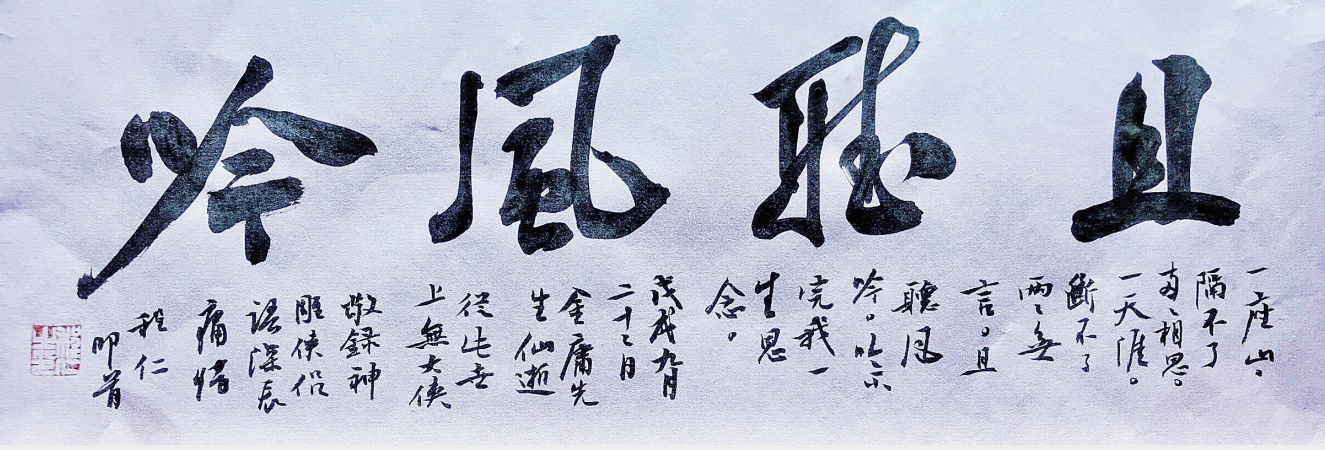 且聽風吟
一座山，
隔不了
兩〻相思。
一天涯。
斷不了
兩〻無
言。且
聽風
吟。吟不
完我一
生思
念。
戊戌九月
二十二日
金庸先
生仙逝
從此世
上無大俠。
敬録神
雕俠侣
語深表
程仁
叩首